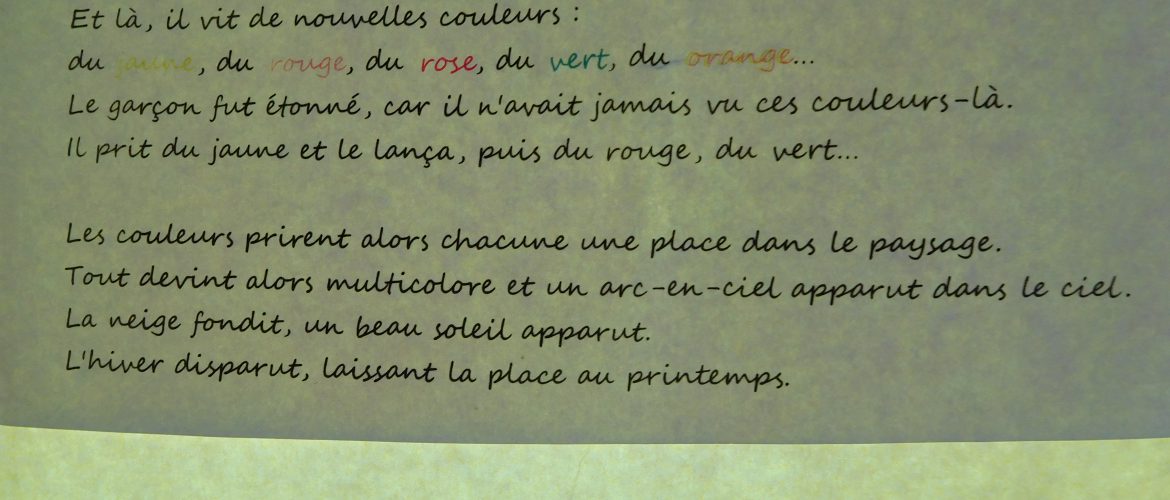 Et là, il vit de nouvelles couleurs :
du jaune, du rouge, du rose, du vert, du orange...
Le garçon fut étonné, car il n'avait jamais vu ces couleurs-là.
Il prit du jaune et le lança, puis du rouge, du vert...
Les couleurs prirent alors chacune une place dans le paysage.
Tout devint alors multicolore et un arc-en-ciel apparut dans le ciel.
La neige fondit, un beau soleil apparut.
L'hiver disparut, laissant la place au printemps.